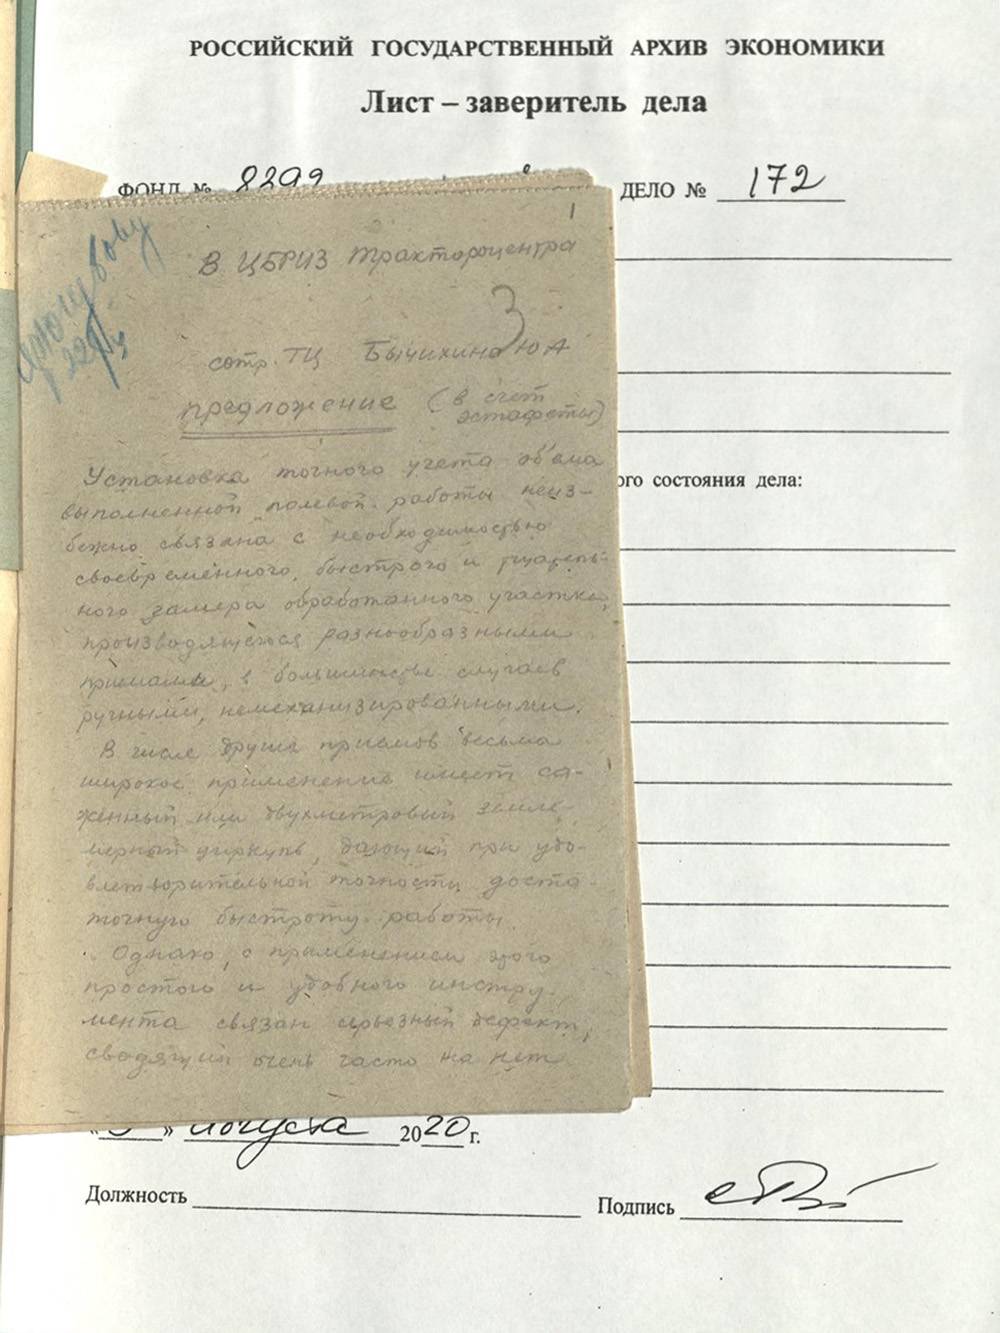 РОССИЙСКИЙ ГОСУДАРСТВЕННЫЙ АРХИВ ЭКОНОМИКИ
Лист – заверитель дела
ФОНД № 8299
ДЕЛО № 172
1
В ЦБРИЗ Трактороцентра
3
сотр. ТЦ Бычихина Ю А
предложение (в счет
эстафеты)
Установка точного учета об'ема
выполненной полевой работы неиз-
бежно связана с необходимостью
своевременного, быстрого и тщатель-
ного замера обработанного участка,
производящегося разнообразными
приемами, в большинстве случаев
ручными, немеханизированными.
В числе других приемов весьма
широкое применение имеет са-
женный или двухметровый земле-
мерный циркуль, дающий при удо-
влетворительной точности доста-
точную быстроту работы.
Однако, с применением этого
простого и удобного инстру-
мента связан серьезный дефект,
сводящий очень часто на нет
ого состояния дела:
августа 2020 г.
Должность
Подпись